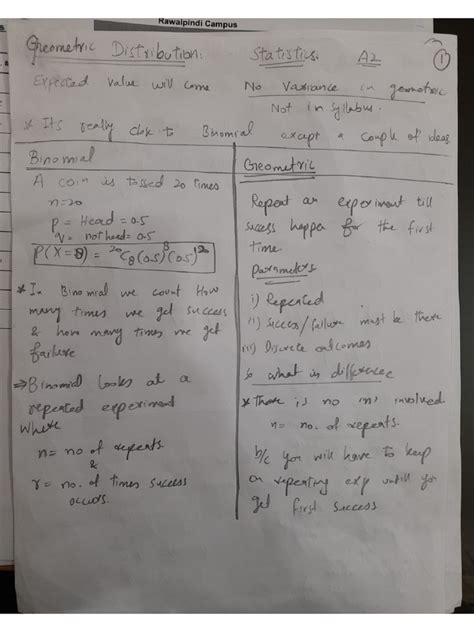 Rawalpindi Campus
Geometric Distribution: Statistics. A2 1
Expected value will come No Variance in geometric
Not in Syllabus.
* Its really close to Binomial except a couple of ideas
Binomial
A coin is tossed 20 times
n=20
p = Head = 0.5
q = not head = 0.5
P(X=8) = 20C8 (0.5)^8 (0.5)^12
* In Binomial we count How
many times we get success
& how many times we get
failure
⇒ Binomial looks at a
repeated experiment
where
n = no of repeats
&
r = no. of times success
occurs.
Geometric
Repeat an experiment till
success happen for the first
time.
Parameters
i) Repeated
ii) Success/failure must be there
iii) Discrete outcomes
So what is difference
* There is no 'n' involved.
n = no. of repeats.
b/c you will have to keep
on repeating exp untill you
get first success